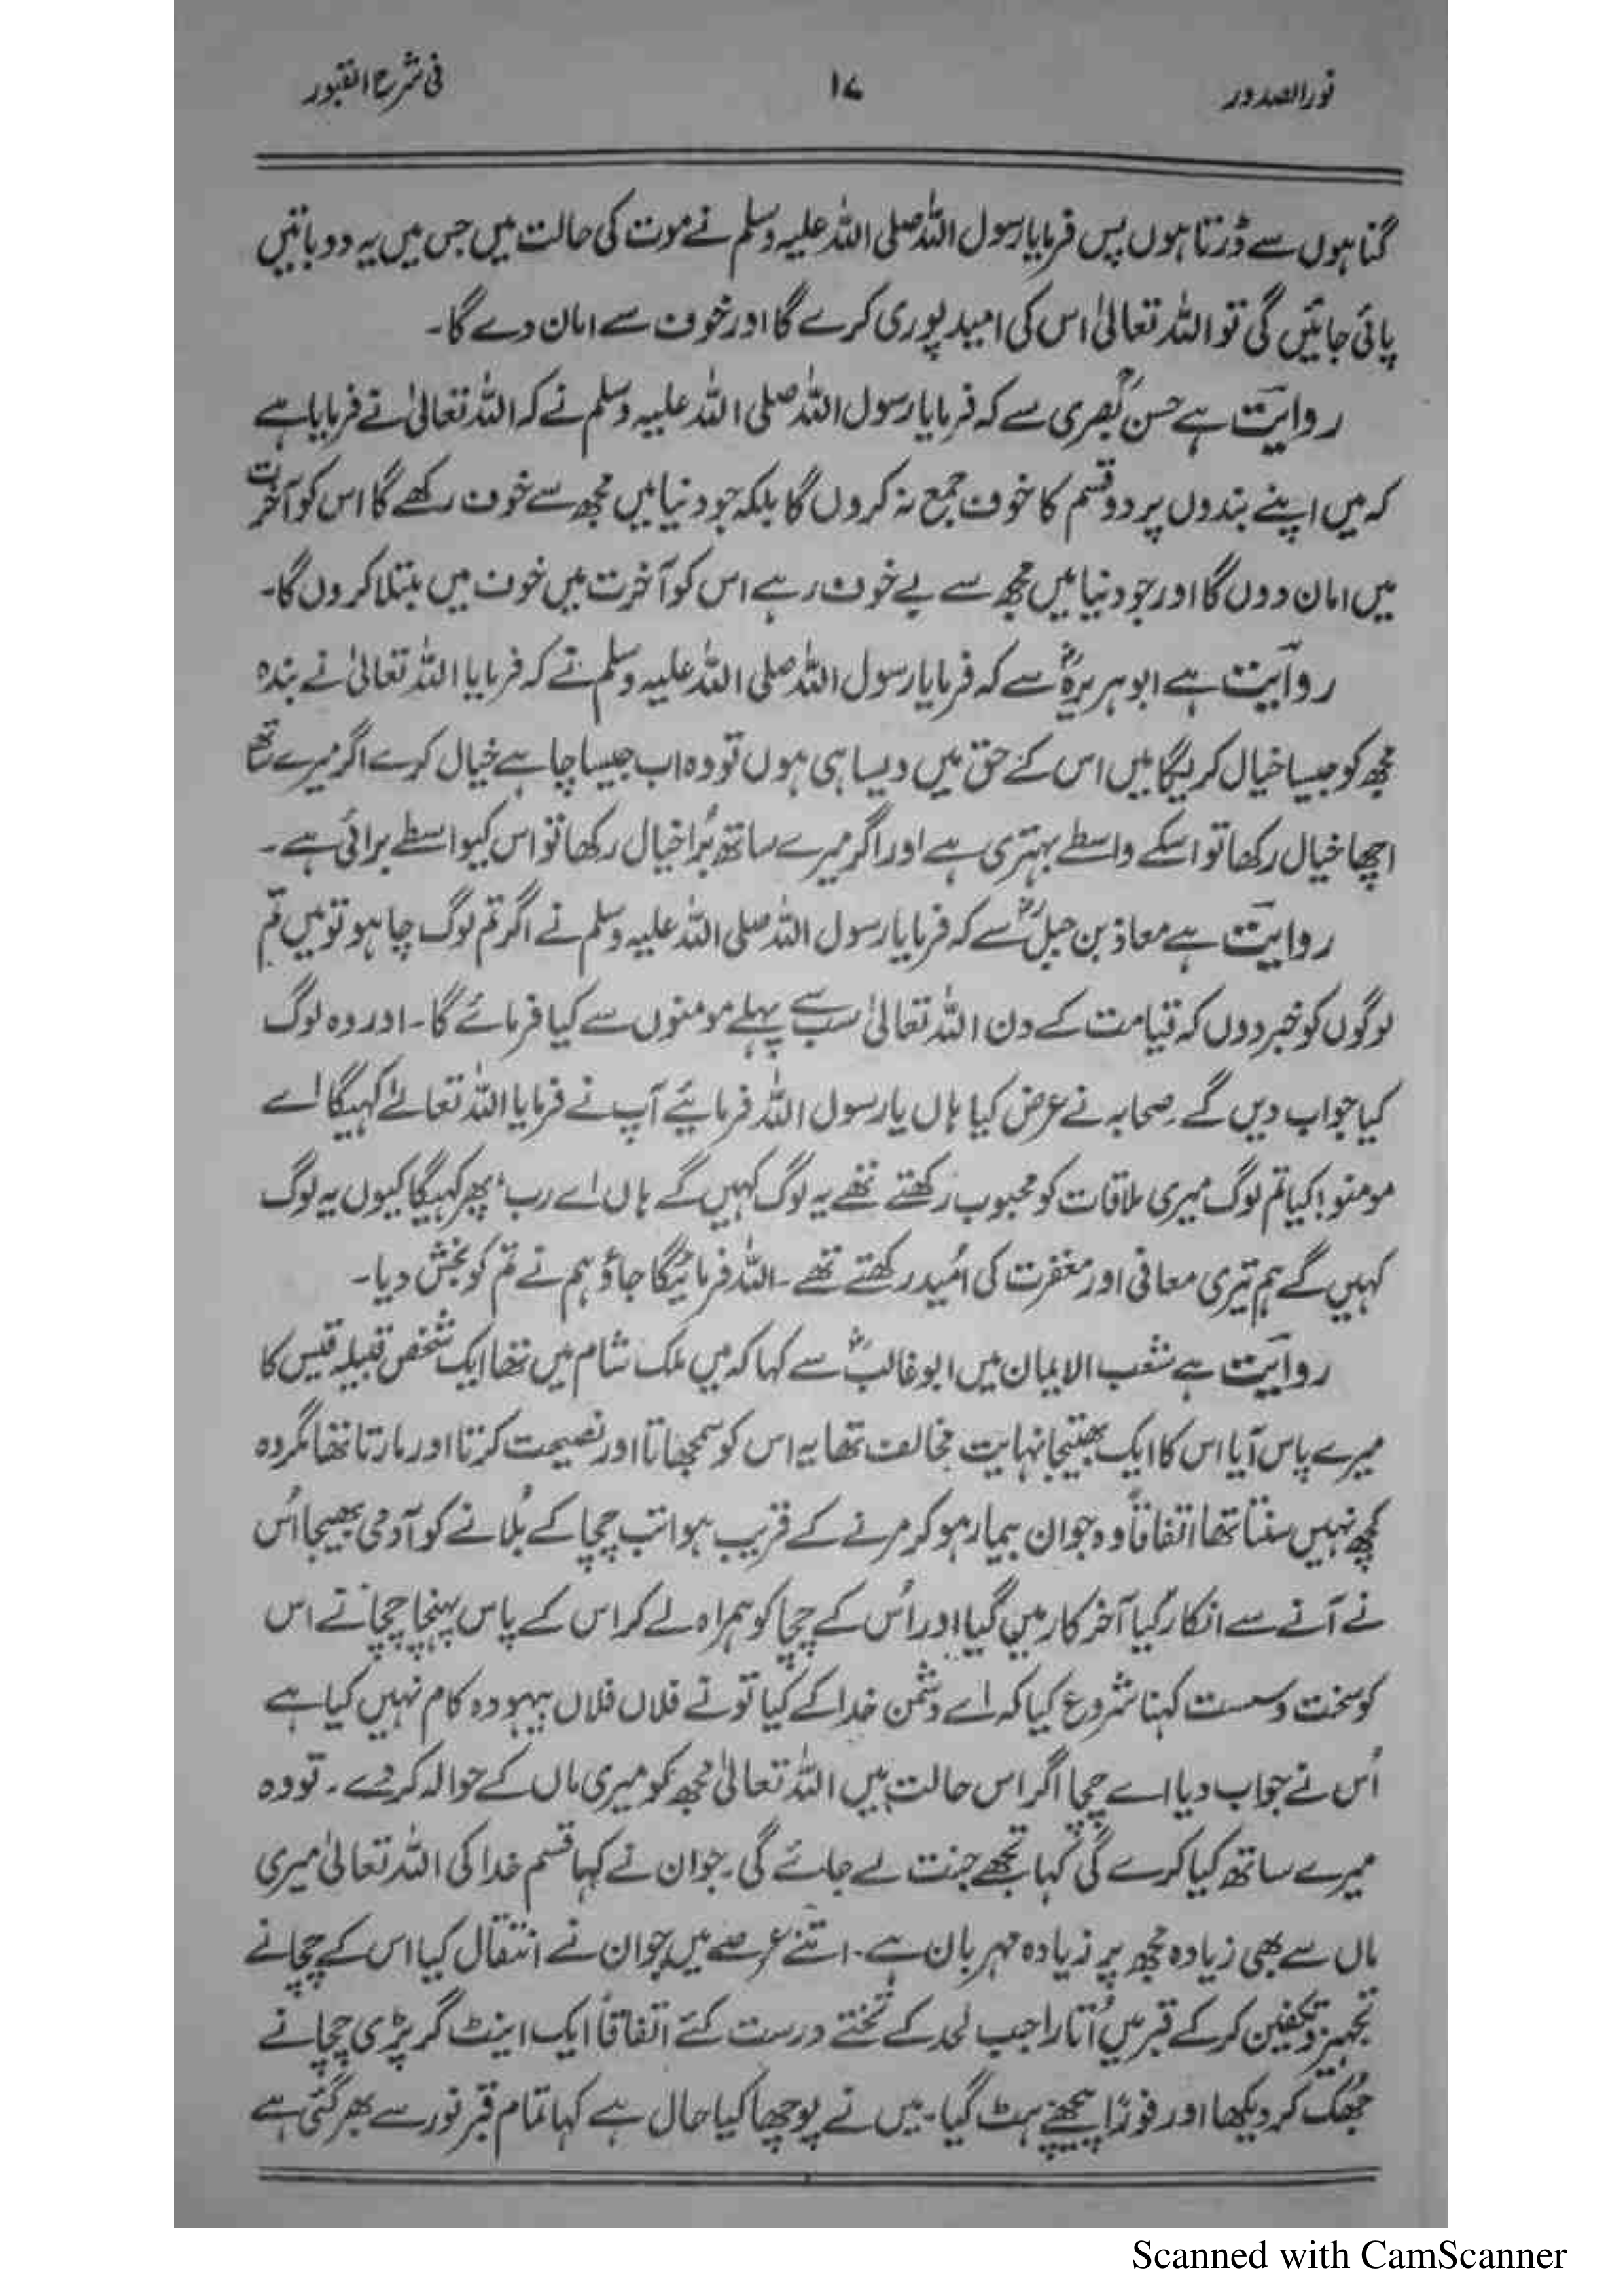 نورالصدور ۱۷ فی شرح القبور
گناہوں سے ڈرتا ہوں پس فرمایا رسول اللہ صلی اللہ علیہ وسلم نے موت کی حالت میں جس میں یہ دو باتیں
پائی جائیں گی تو اللہ تعالیٰ اس کی امید پوری کرے گا اور خوف سے امان دے گا۔
روایت ہے حسن بصریؒ سے کہ فرمایا رسول اللہ صلی اللہ علیہ وسلم نے کہ اللہ تعالیٰ نے فرمایا ہے
کہ میں اپنے بندوں پر دو قسم کا خوف جمع نہ کروں گا بلکہ جو دنیا میں مجھ سے خوف رکھے گا اس کو آخرت
میں امان دوں گا اور جو دنیا میں مجھ سے بے خوف رہے اس کو آخرت میں خوف میں مبتلا کروں گا۔
روایت ہے ابوہریرہؓ سے کہ فرمایا رسول اللہ صلی اللہ علیہ وسلم نے کہ فرمایا اللہ تعالیٰ نے بندہ
مجھ کو جیسا خیال کریگا میں اس کے حق میں ویسا ہی ہوں تو وہ اب جیسا چاہے خیال کرے اگر میرے ساتھ
اچھا خیال رکھا تو اسکے واسطے بہتری ہے اور اگر میرے ساتھ بُرا خیال رکھا تو اس کیواسطے برائی ہے۔
روایت ہے معاذ بن جبلؓ سے کہ فرمایا رسول اللہ صلی اللہ علیہ وسلم نے اگر تم لوگ چاہو تو میں تم
لوگوں کو خبر دوں کہ قیامت کے دن اللہ تعالیٰ سب سے پہلے مومنوں سے کیا فرمائے گا۔ اور وہ لوگ
کیا جواب دیں گے۔ صحابہ نے عرض کیا ہاں یا رسول اللہ فرمائیے آپ نے فرمایا اللہ تعالےٰ کہیگا اے
مومنو! کیا تم لوگ میری ملاقات کو محبوب رکھتے تھے یہ لوگ کہیں گے ہاں اے رب، پھر کہیگا کیوں یہ لوگ
کہیں گے ہم تیری معافی اور مغفرت کی اُمید رکھتے تھے۔ اللہ فرمائیگا جاؤ ہم نے تم کو بخش دیا۔
روایت ہے شعب الایمان میں ابوغالبؓ سے کہا کہ میں ملک شام میں تھا ایک شخص قبیلہ قیس کا
میرے پاس آیا اس کا ایک بھتیجا نہایت مخالف تھا یہ اس کو سمجھاتا اور نصیحت کرتا اور مارتا تھا مگر وہ
کچھ نہیں سنتا تھا اتفاقاً وہ جوان بیمار ہو کر مرنے کے قریب ہوا تب چچا کے بُلانے کو آدمی بھیجا اُس
نے آنے سے انکار کیا آخر کار میں گیا اور اُس کے چچا کو ہمراہ لے کر اس کے پاس پہنچا چچا نے اس
کو سخت وسست کہنا شروع کیا کہ اے دشمن خدا کے کیا تو نے فلاں فلاں بیہودہ کام نہیں کیا ہے
اُس نے جواب دیا اے چچا اگر اس حالت میں اللہ تعالیٰ مجھ کو میری ماں کے حوالہ کر دے۔ تو وہ
میرے ساتھ کیا کرے گی کہا تجھے جنت لے جائے گی۔ جوان نے کہا قسم خدا کی اللہ تعالیٰ میری
ماں سے بھی زیادہ مجھ پر زیادہ مہربان ہے۔ اتنے عرصے میں جوان نے انتقال کیا اس کے چچا نے
تجہیز وتکفین کر کے قبر میں اُتارا جب لحد کے تختے درست کئے اتفاقاً ایک اینٹ گر پڑی چچا نے
جُھک کر دیکھا اور فوراً پیچھے ہٹ گیا۔ میں نے پوچھا کیا حال ہے کہا تمام قبر نور سے بھر گئی ہے
Scanned with CamScanner